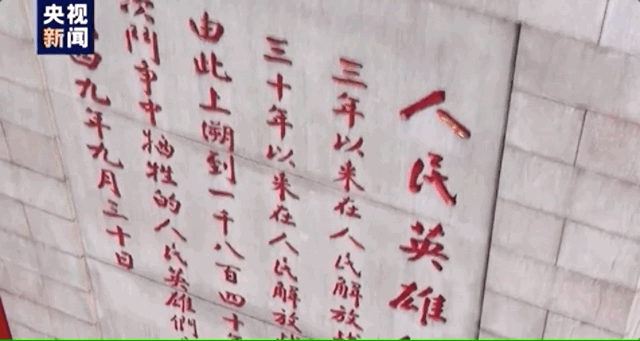 央视
新闻
人民英雄
三年以来在人民解放
三十年以来在人民解放
由此上溯到一千八百四十年
鬥争中牺牲的人民英雄們
四九年九月三十日